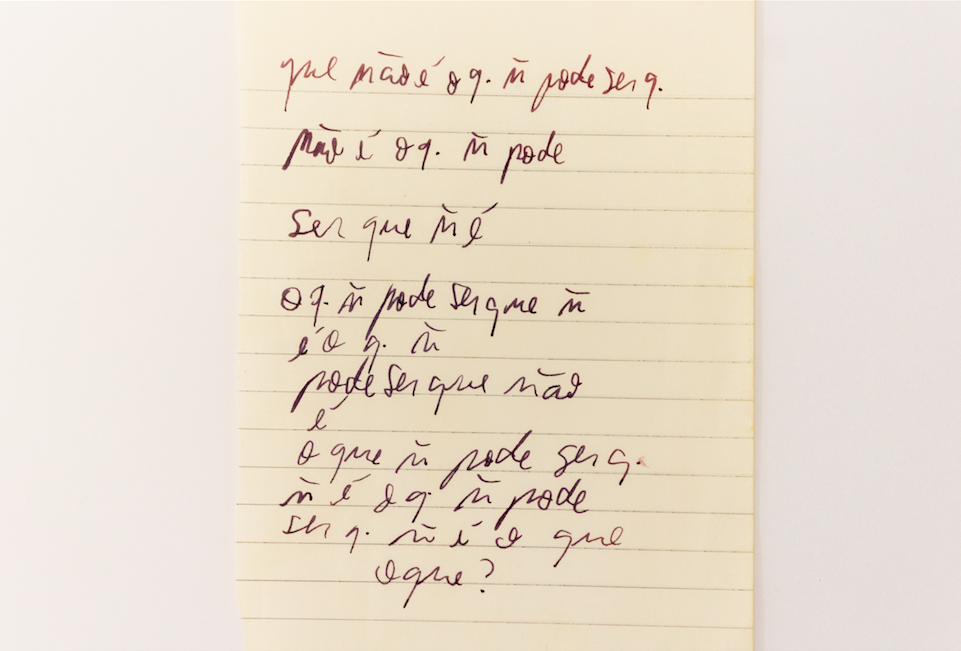 que não é o q. ñ pode ser q.
não é o q. ñ pode
ser que ñ é
o q. ñ pode ser que ñ
é o q. ñ
pode ser que não
é
o que ñ pode ser q.
ñ é o q. ñ pode
ser q. ñ é o que
o que?